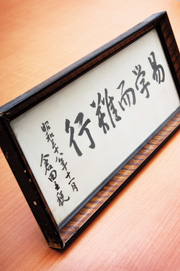 易学而難行
昭和 年十一月
倉田主税